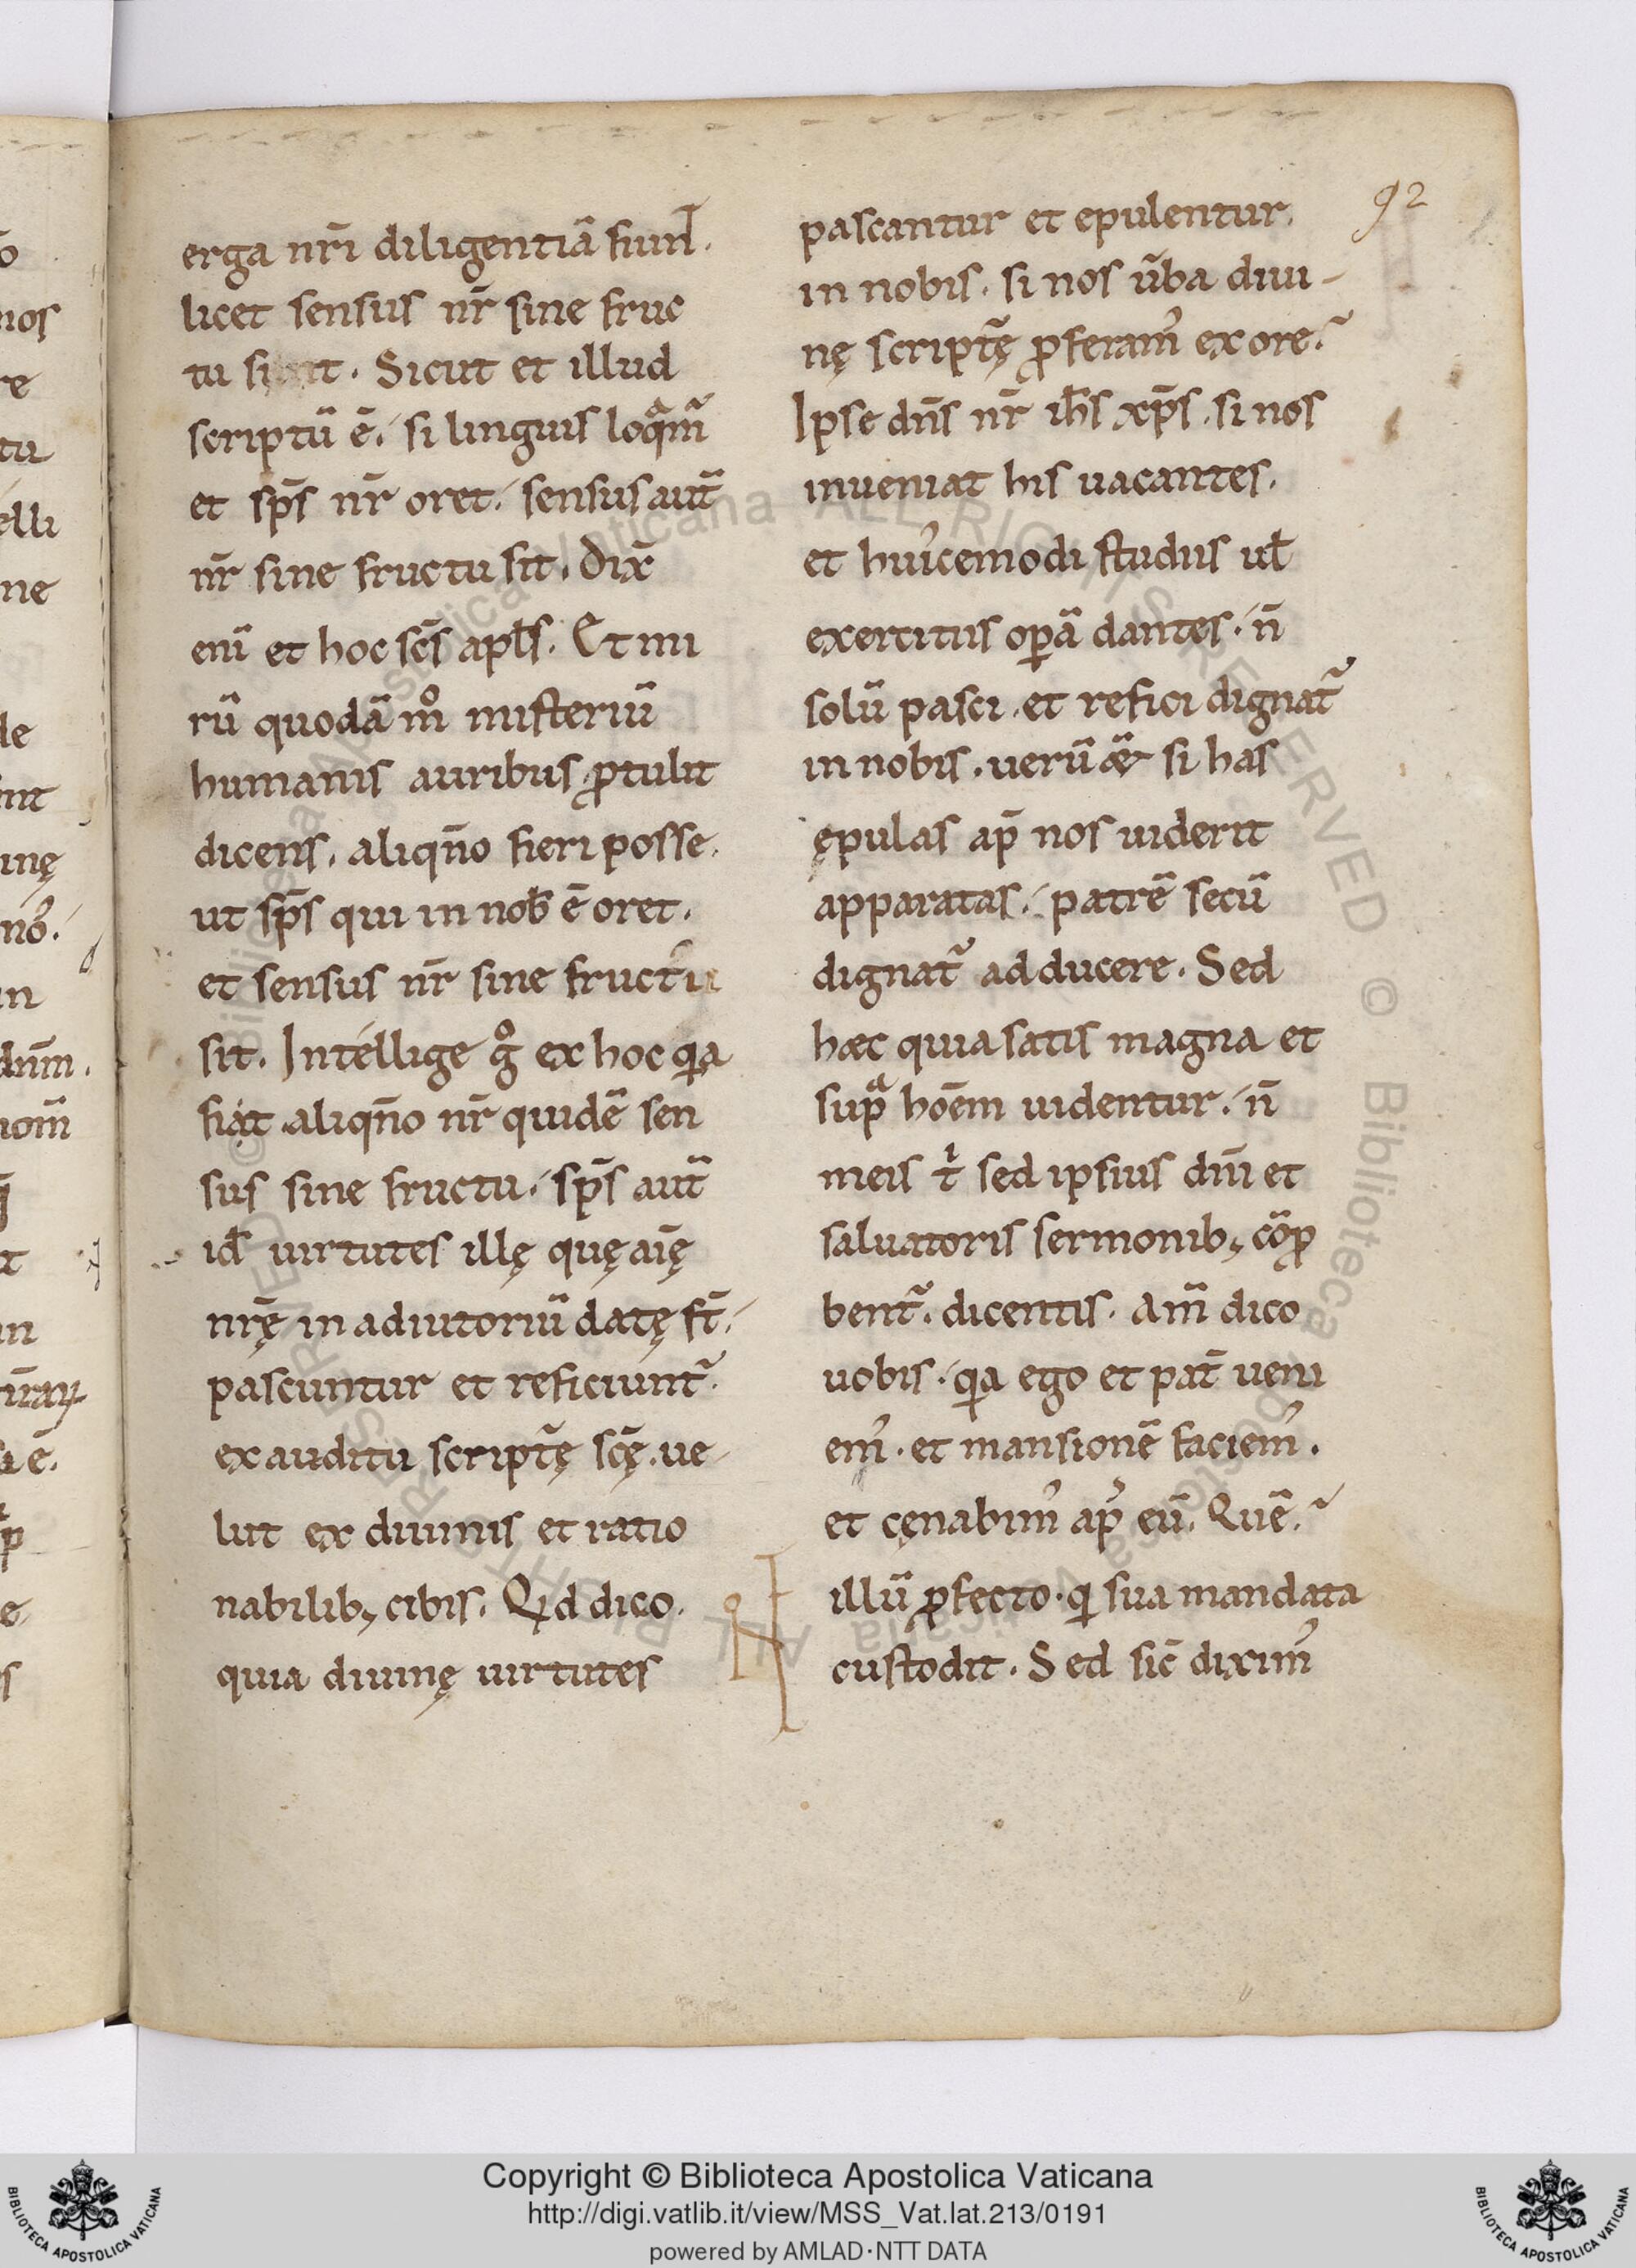 erga nr̄i diligentiā fiunt̄.
licet sensus nr̄ sine fruc
tu sint. Sicut et illud
scriptū ē. si linguis loqᵃm̃
et sp̄s nr̄ oret. sensus aut̄
nr̄ sine fructu sit. Dix̄
enī et hoc sc̄s apl̄s. Et mi
rū quodā mº misteriū
humanis auribus ꝓtulit
dicens. aliqn̄o fieri posse.
ut sp̄s qui in nob̄ ē oret.
et sensus nr̄ sine fructu
sit. Intellige gº ex hoc qa
fiat aliqn̄o nr̄ quidē sen
sus sine fructu. sp̄s aut̄
id̄ uirtutes illę quę aīę
nr̄ę in adiutoriū datę st̄.
pascuntur et reficiunt̃.
ex auditu script̃ę sc̄ę. ue
lut ex diuinis et ratio
nabilib; cibis. Qd dico.
quia diuinę uirtutes
92
pascantur et epulentur.
in nobis. si nos ūba diui-
nę script̃ę ꝓferam᾽ ex ore.
Ipse dn̄s nr̄ ih̄s xp̄s. si nos
inueniat his uacantes.
et hui᾽cemodi studiis ul̄
exercitiis oꝑā dantes. n̄
solū pasci. et refici dignat̃
in nobis. uerū & si has
ępulas ap̄ nos uiderit
apparatas. patrē secū
dignat̃ adducere. Sed
hæc quia satis magna et
supᵃ hōem uidentur. n̄
meis tⁱ sed ipsius dn̄i et
saluatoris sermonib; cōꝓ
bent̃. dicentis. Am̄ dico
uobis. qa ego et pat̄ ueni
em᾽. et mansionē faciem᾽.
et cęnabim᾽ ap᾽ eū. Quē.
illū ꝓfecto. q sua mandata
custodit. Sed sic̄ dixim᾽
Copyright © Biblioteca Apostolica Vaticana
http://digi.vatlib.it/view/MSS_Vat.lat.213/0191
powered by AMLAD·NTT DATA